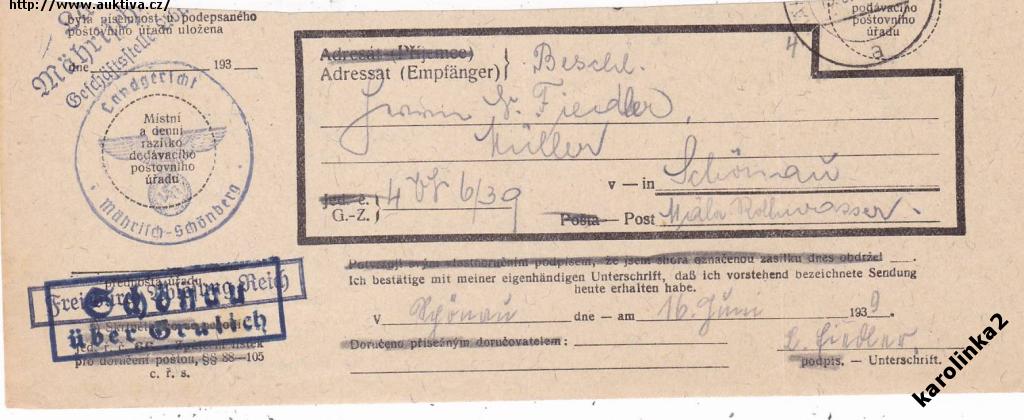 http://www.auktiva.cz/
byla písemnost u podepsaného
poštovního úřadu uložena
Mährisch
Geschäftsstelle
dne 193
Landgericht
Mährisch-Schönberg
Místní
a denní
razítko
dodávacího
poštovního
úřadu
podávacího
poštovního
úřadu
a
4
Adresát (Příjemce)
Adressat (Empfänger)
Beschl.
Herrn G. Fiedler,
Müller
v — in Schönau
jed. č.
G.-Z.
4 6/39
Pošta — Post
Potvrzuji svým vlastnoručním podpisem, že jsem shora označenou zásilku dnes obdržel
Ich bestätige mit meiner eigenhändigen Unterschrift, daß ich vorstehend bezeichnete Sendung
heute erhalten habe.
v Schönau dne — am 16. Juni 1939
Doručeno přísežným doručovatelem:
podpis. — Unterschrift.
přednosta úřadu
Frei durch Ablösung Reich
Schönau
über Grulich
pro doručení poštou, §§ 88—105
c. ř. s.
karolinka2